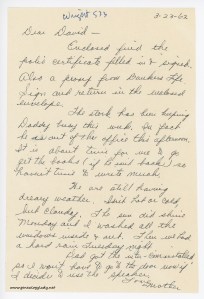 Wright 573
3-22-62
Dear David –
Enclosed find the
polio certificate filled in & signed.
Also a proxy from Bankers Life
Sign and return in the enclosed
envelope.
The stork has been keeping
Daddy busy this week. In fact
he is out of the office this afternoon.
It is about time for me to go
get the books (if he isn't back) so
haven't time to write much.
We are still having
dreary weather. Isn't hot or cold,
but cloudy. The sun did shine
Monday and I washed all the
windows inside & out. Then we had
a hard rain Tuesday night.
Dad got the inter-com installed
so I won't have to go to the door now if
I decide to use the speaker.
Love
Mother
www.pinesingsly.net